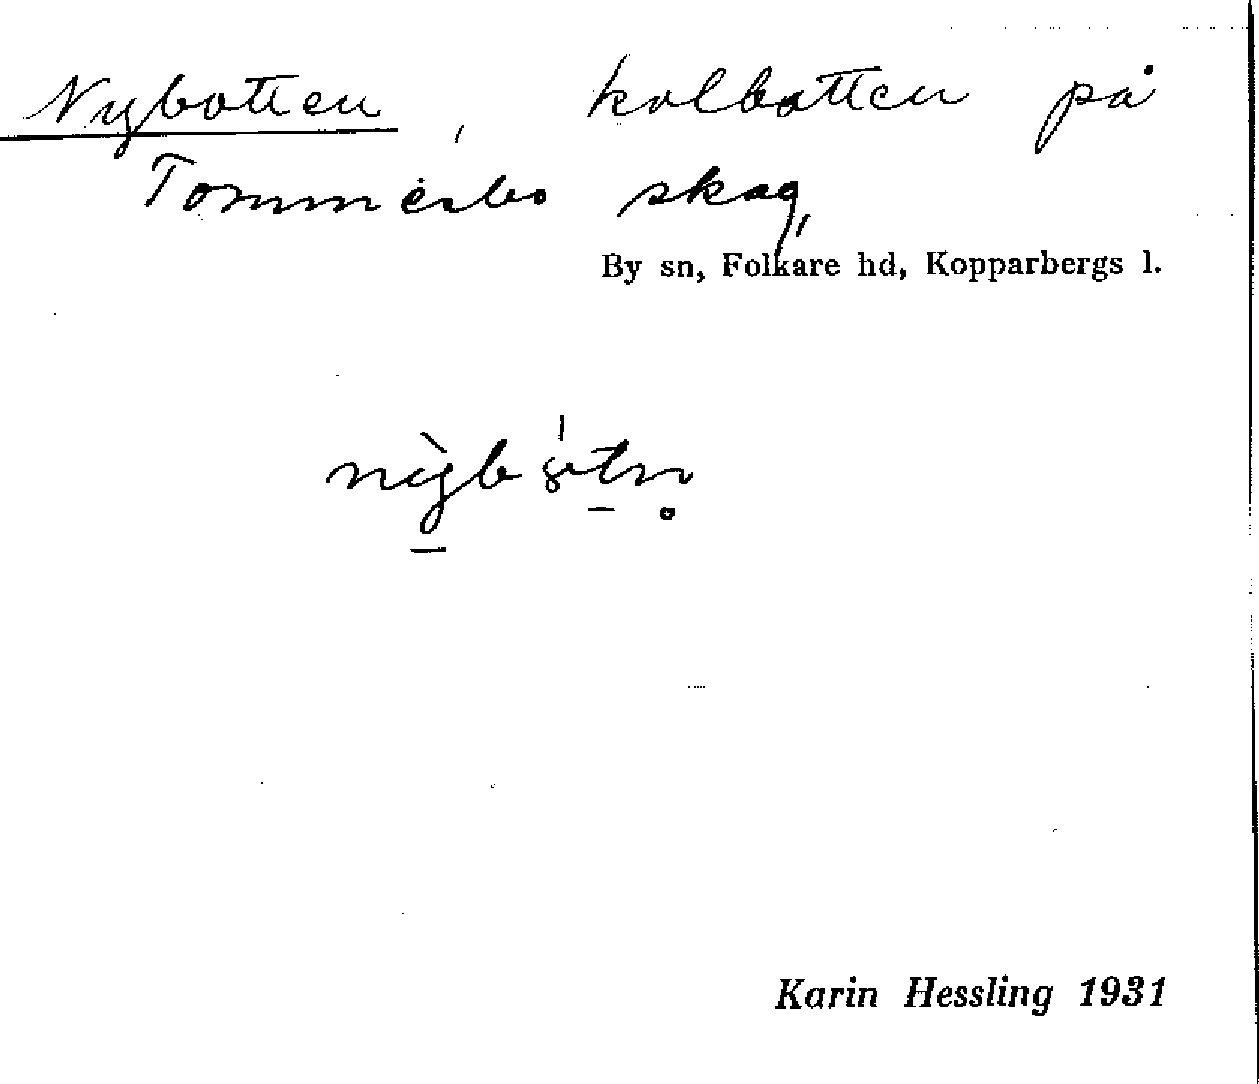 Nybotten, kolbotten på
Tommėsbo skog,
By sn, Folkare hd, Kopparbergs l.
Karin Hessling 1931